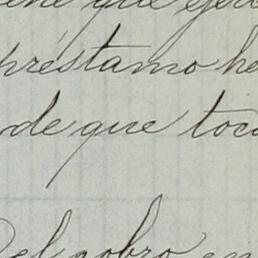 que ejer
préstamo he
de que toca
Del cobro en